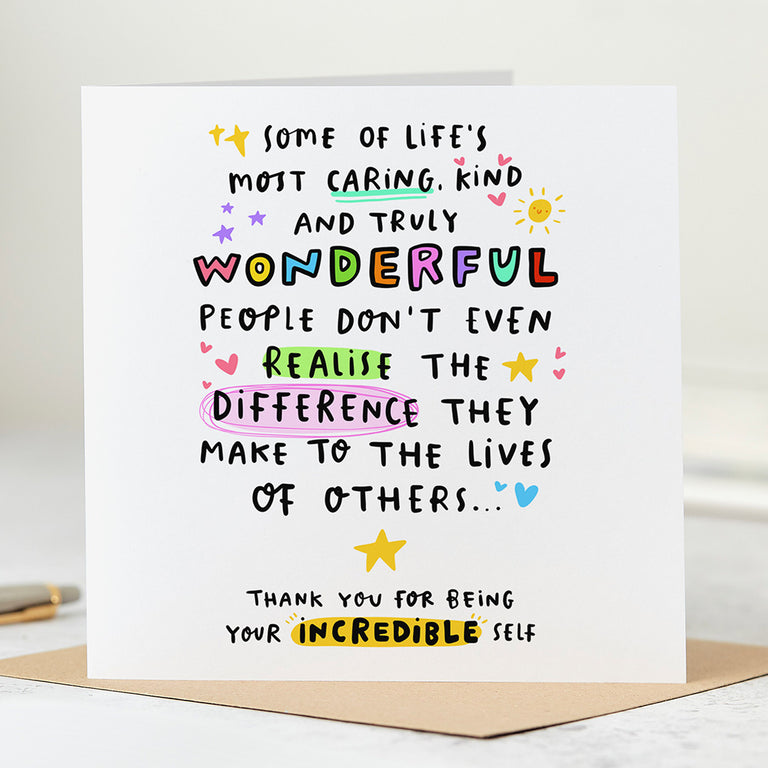 SOME OF LiFE'S
MOST CARiNG, KiND
AND TRULY
WONDERFUL
PEOPLE DON'T EVEN
REALiSE THE
DiFFERENCE THEY
MAKE TO THE LiVES
OF OTHERS...
THANK YOU FOR BEiNG
YOUR iNCREDiBLE SELF